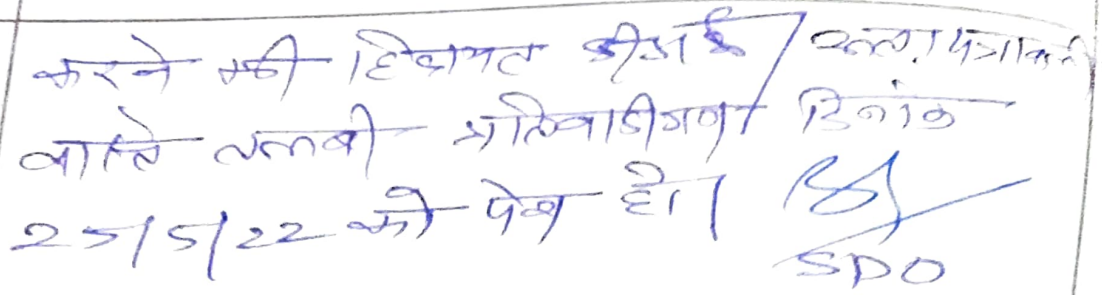 करने की हिदायत दी गई है। पत्रावली
वास्ते तलबी प्रतिवादीगण दिनांक
25/5/22 को पेश हो।
SDO